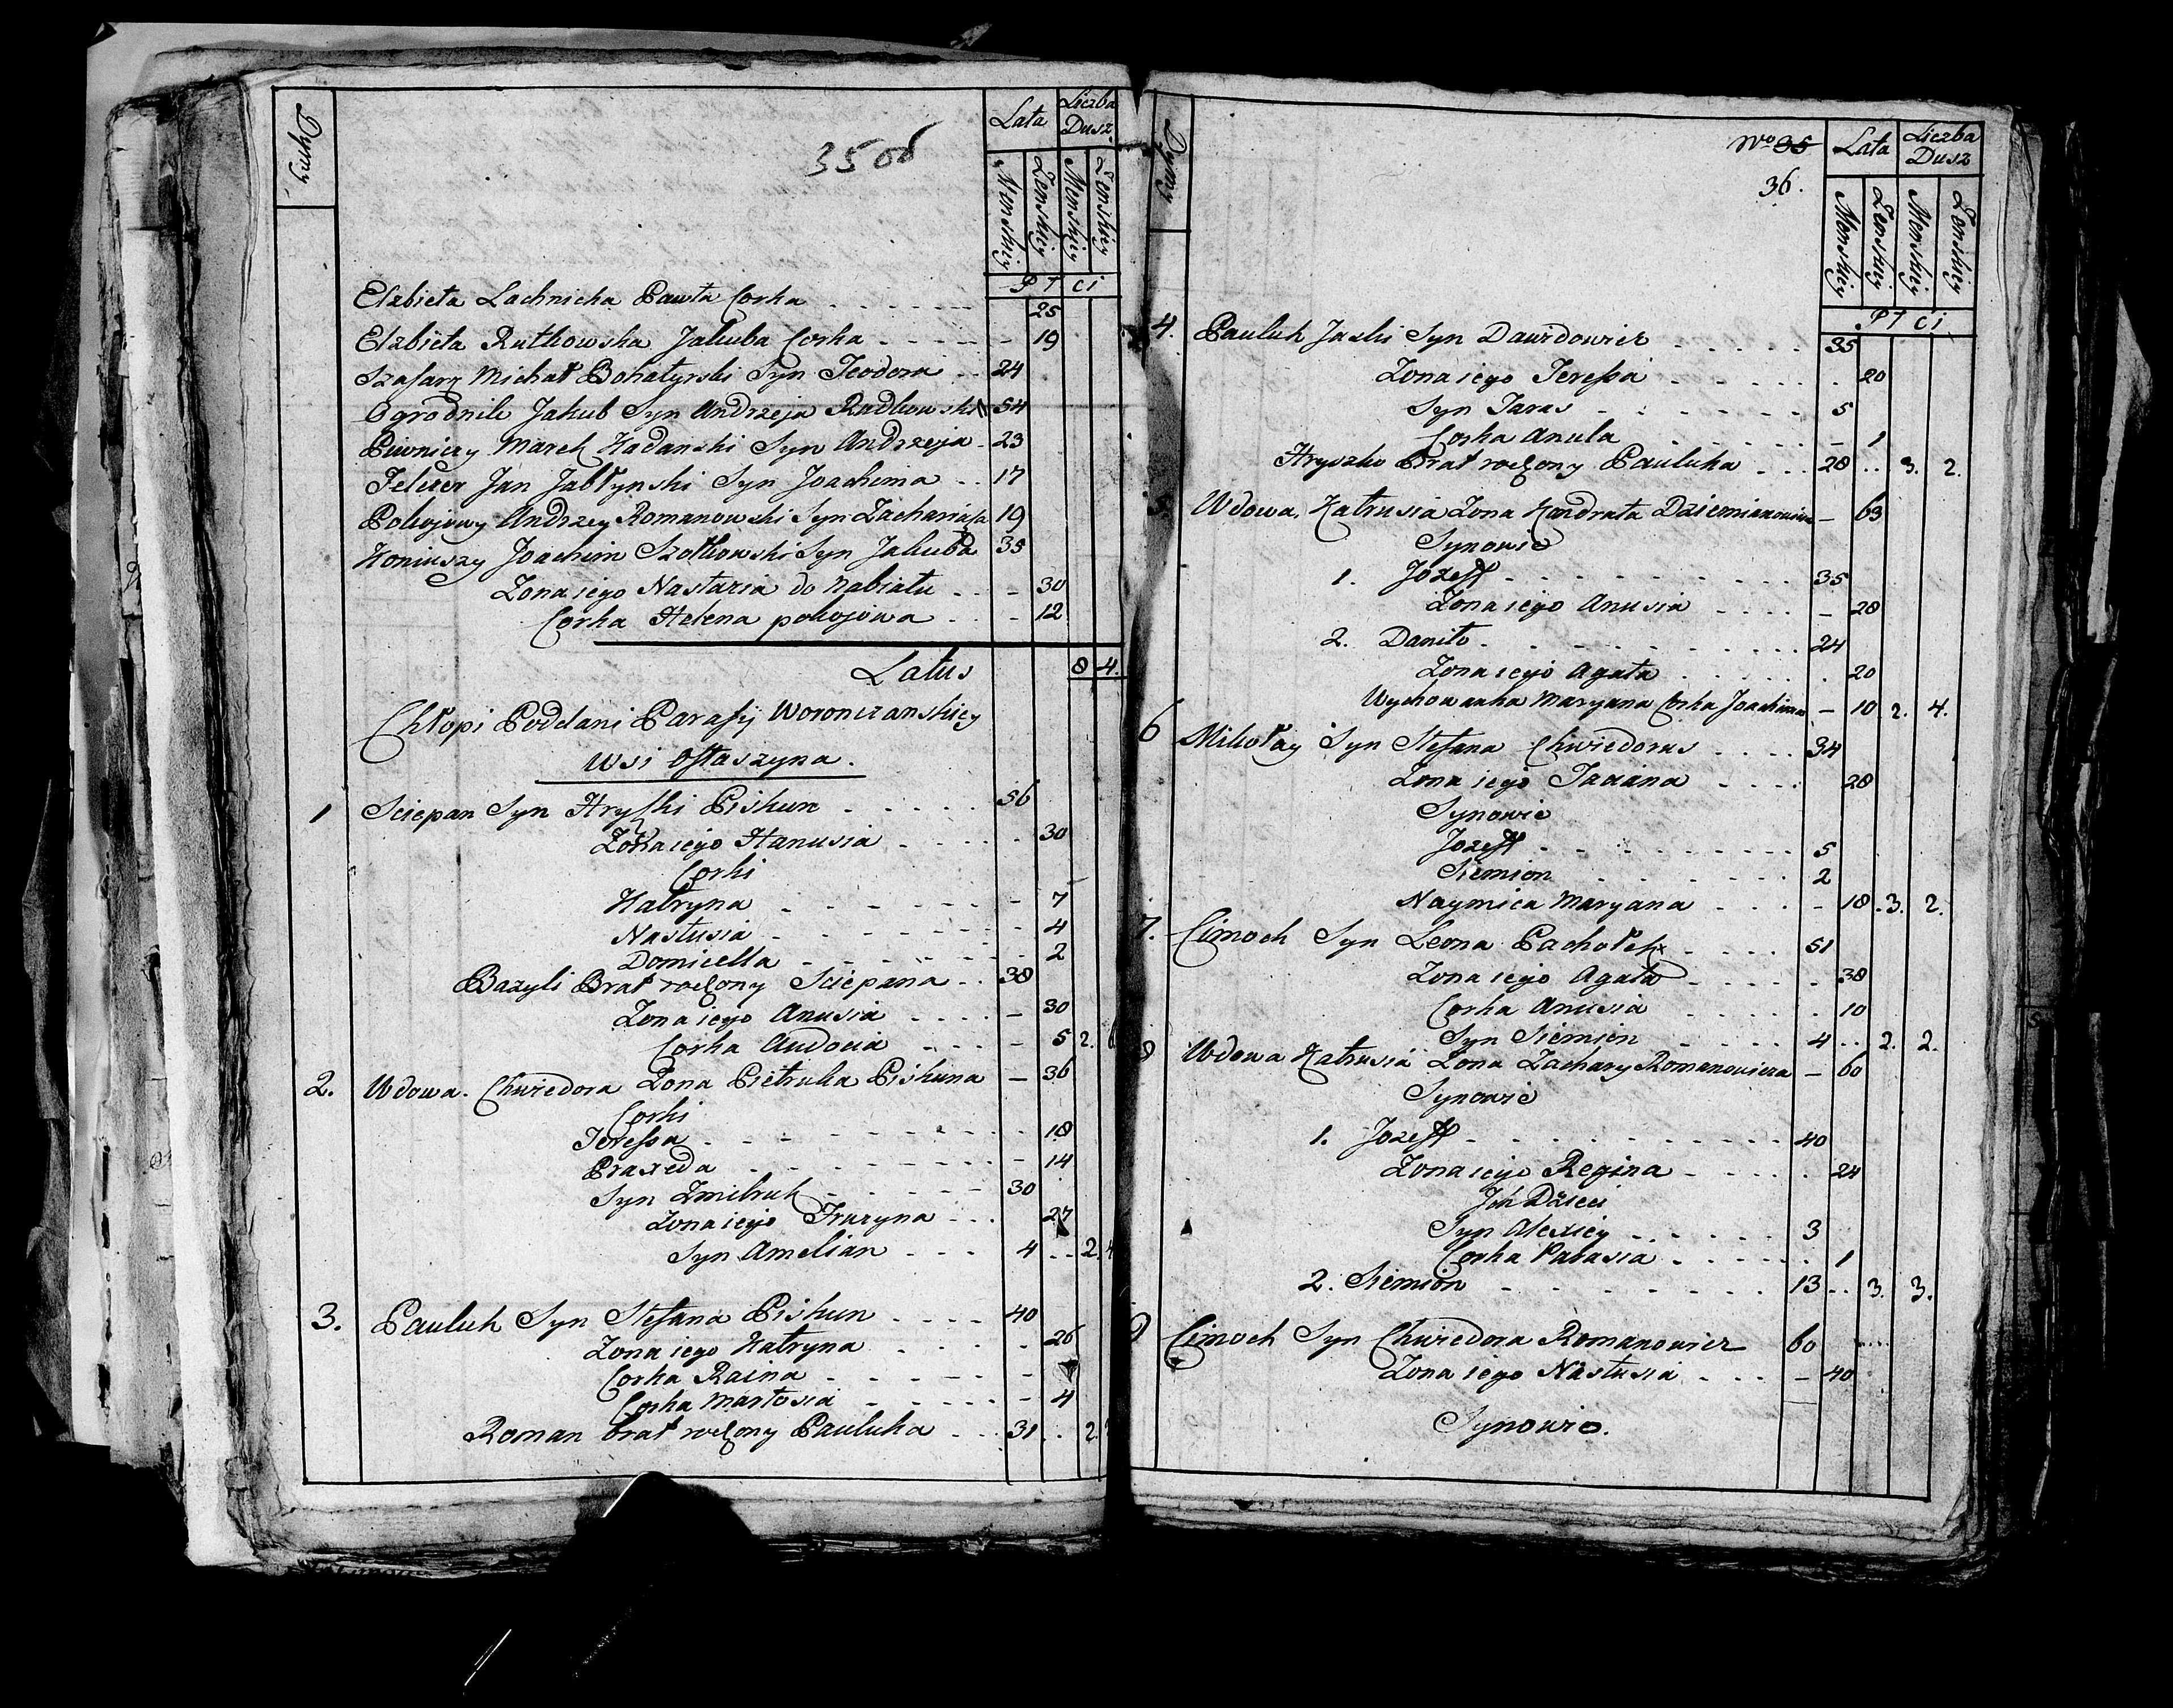 Dymy
35 об
Lata
Liczba Dusz
Męskiey
Żenskiey
Męskiey
Żenskiey
Płci
Elzbieta Lachnicka Pawła Corka - - - 25
Elzbieta Rutkowska Jakuba Corka - - - 19
Szafarz Michał Bohatyrski Syn Teodora - - 24
Ogrodnik Jakub Syn Andrzeja Radkowski 54
Piwniczy Marek Kadanski Syn Andrzeja - 23
Felczer Jan Jabłynski Syn Joachima - - 17
Pokojowy Andrzey Romanowski Syn Zachariasza 19
Koniuszy Joachim Szotkowski Syn Jakuba 35
Zona iego Nastazia do Nabiału - - - 30
Corka Helena pokojowa - - - 12
Latus 8 4.
Chłopi Poddani Parafij Woronczanskiey
Wsi Ostaszyna.
1 Sciepan Syn Hryszki Piskun - - - 56
Zona iego Hanusia - - - 30
Corki
Katryna - - - 7
Nastusia - - - 4
Domicella - - - 2
Bazyli Brat rodzony Sciepana - - 38
Zona iego Anusia - - - 30
Corka Audocia - - - 5 2. 6
2. Wdowa. Chwiedora Zona Pietruka Piskuna - 36
Corki
Teressa - - - 18
Praxeda - - - 14
Syn Zmitruk - - - 30
Zona iego Fruzyna - - - 27
Syn Amelian - - - 4 - - 2. 4
3. Pauluk Syn Stefana Piskun - - - 40
Zona iego Katryna - - - 26
Corka Raina - - -
Corka Martosia - - - 4
Roman brat rodzony Pauluka - - - 31 - - 2.
Dymy
No 35
36.
Lata
Liczba Dusz
Męskiey
Żenskiey
Męskiey
Żenskiey
Płci
4. Pauluk Jaski Syn Dawidowicz - - - 35
Zona iego Teressa - - - 20
Syn Taras - - - 5
Corka Anula - - - 1
Hryszko Brat rodzony Pauluka - - - 28 - - 3. 2.
5. Wdowa, Katrusia Zona Kondrata Dziemianowicza - 63
Synowie
1. Jozeff - - - 35
Zona iego Anusia - - - 28
2. Daniło - - - 24
Zona iego Agata - - - 20
Wychowanka Maryana Corka Joachima - 10 2. 4.
6 Mikołay Syn Stefana Chwiedoras - - - 34
Zona iego Taciana - - - 28
Synowie
Jozeff - - - 5
Siemion - - - 2
Naymica Maryana - - - 18 . 3. 2.
7. Cimoch Syn Leona Pachołek - - - 51
Zona iego Agata - - - 38
Corka Anusia - - - 10
Syn Siemion - - - 4 - - 2. 2.
8 Wdowa Katrusia Zona Zachary Romanowicza - 60
Synowie
1. Jozeff - - - 40
Zona iego Regina - - - 24
Jch Dzieci
Syn Alexiey - - - 3
Corka Pałasia - - - 1
2. Siemion - - - 13 - - 3. 3.
9 Cimoch Syn Chwiedora Romanowicz 60
Zona iego Nastusia - - - 40
Synowie.